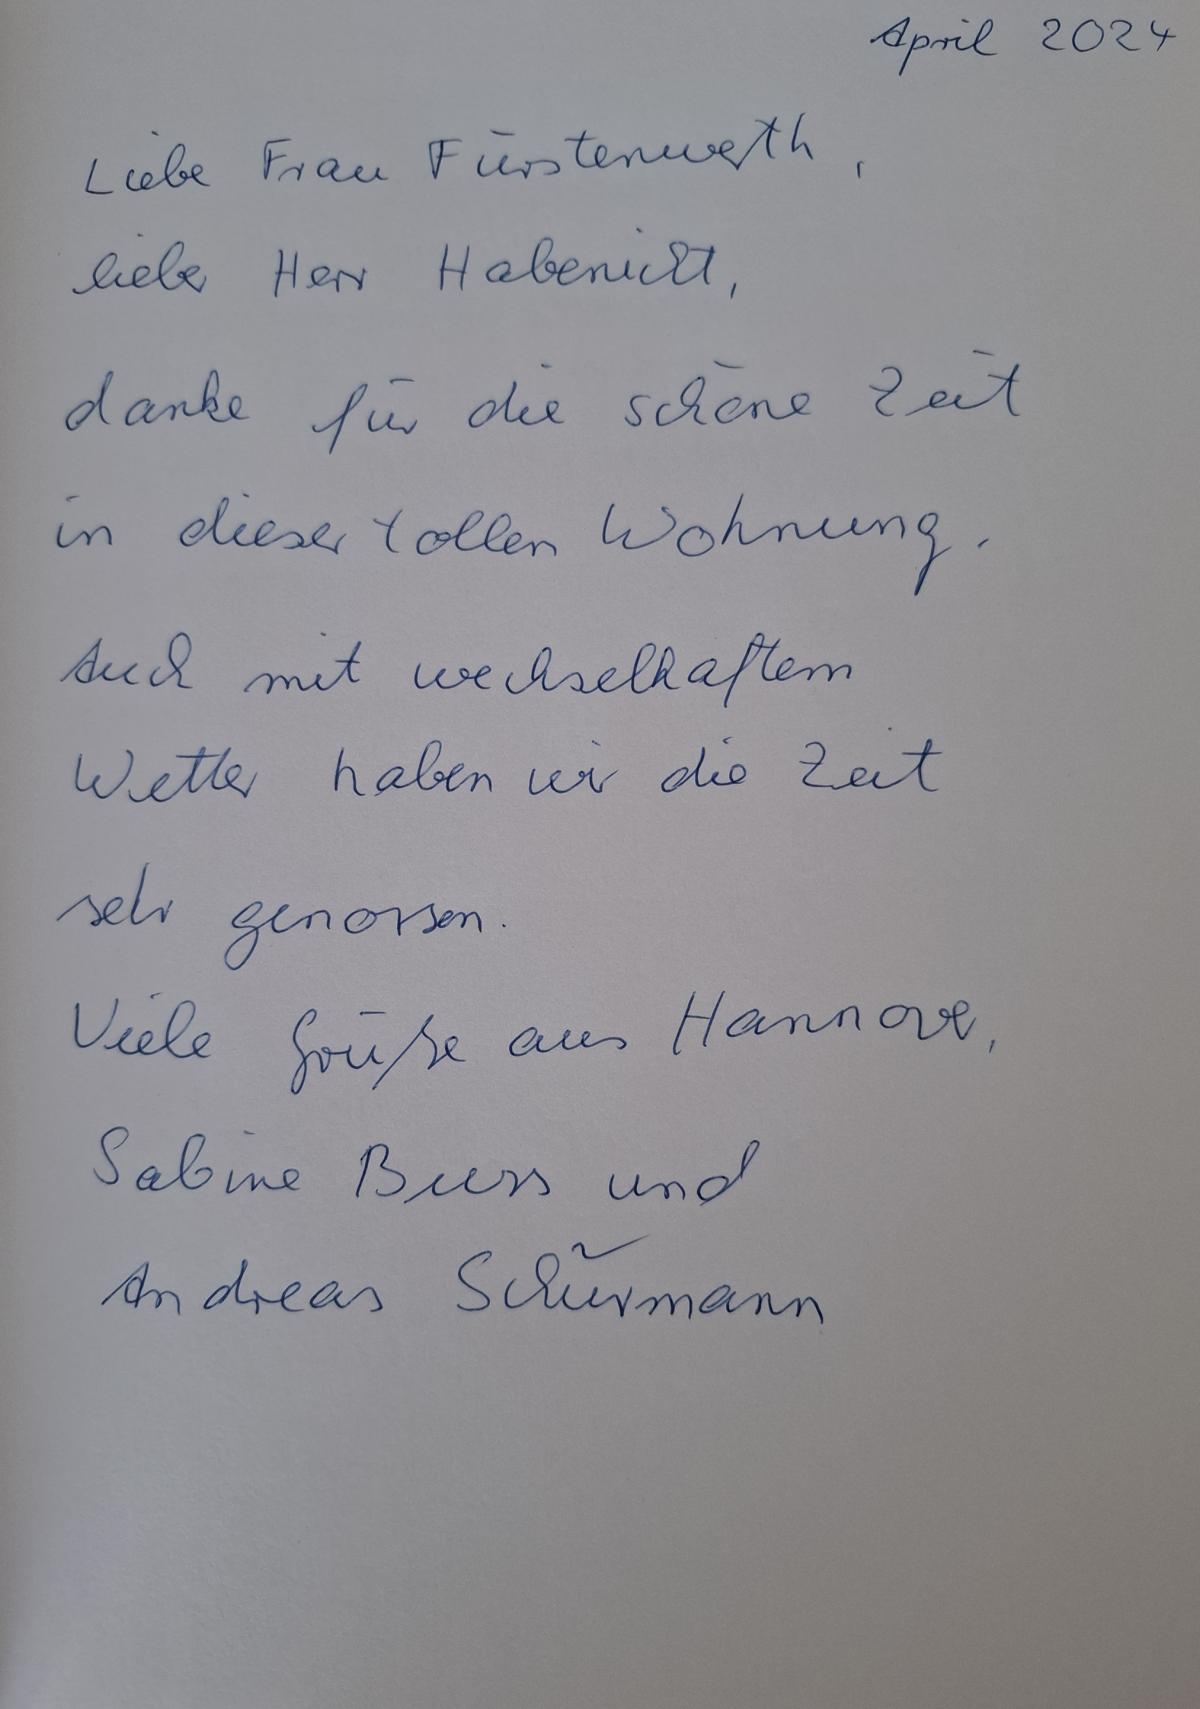 April 2024
Liebe Frau Fürstenwerth,
lieber Herr Habenicht,
danke für die schöne Zeit
in dieser tollen Wohnung.
Auch mit wechselhaftem
Wetter haben wir die Zeit
sehr genossen.
Viele Grüße aus Hannover,
Sabine Buss und
Andreas Schürmann